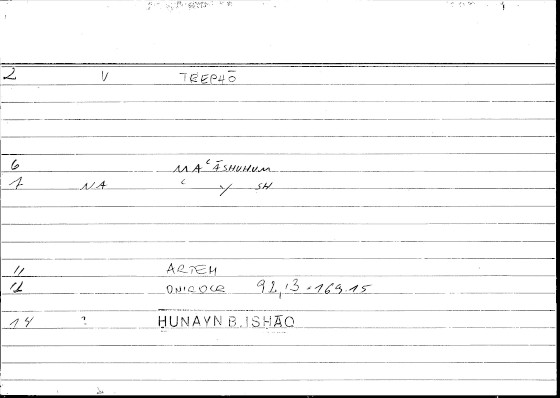 2 V TREPHŌ
6 MAʿĀSHUHUM
7 NA ʿ Y SH
11 ARTEM
12 ONIROCR 92,13-169.15
14 ? HUNAYN B. ISHĀQ